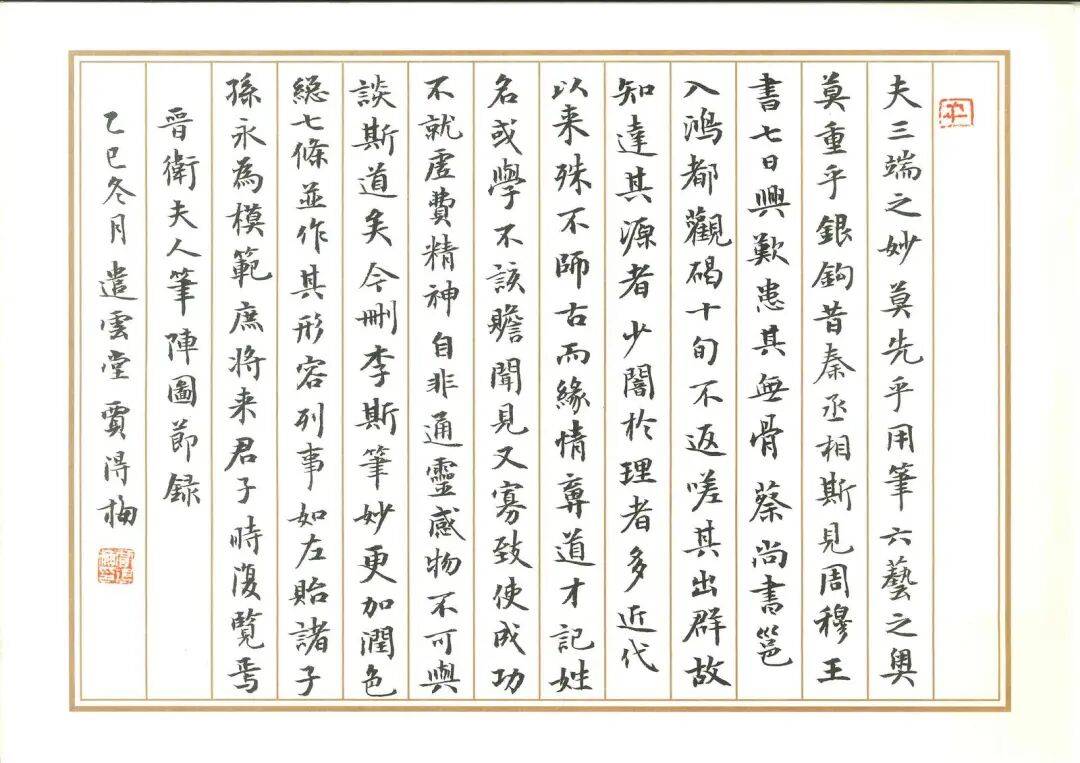 夫三端之妙莫先乎用筆六藝之奧
莫重乎銀鈎昔秦丞相斯見周穆王
書七日興歎患其無骨蔡尚書邕
入鴻都觀碣十旬不返嗟其出群故
知達其源者少闇於理者多近代
以来殊不師古而緣情棄道才記姓
名或學不該贍聞見又寡致使成功
不就虛費精神自非通靈感物不可與
談斯道矣今刪李斯筆妙更加潤色
總七條並作其形容列事如左貽諸子
孫永為模範庶將来君子時復覽焉
晉衛夫人筆陣圖節録
乙巳冬月遣雲堂賈得梅